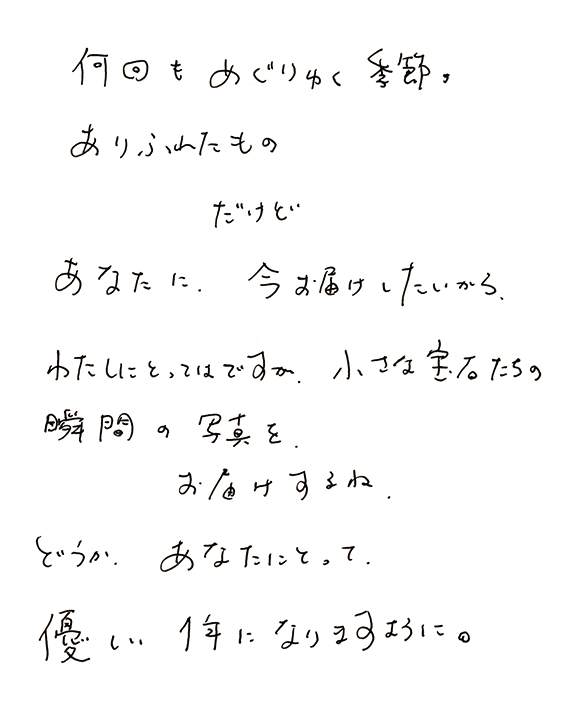 何回も めぐりゆく 季節。
ありふれたもの
だけど
あなたに、今お届けしたいから、
わたしにとってはですが、小さな宝石たちの
瞬間の写真を、
お届けするね、
どうか、あなたにとって、
優しい 1年になりますように。